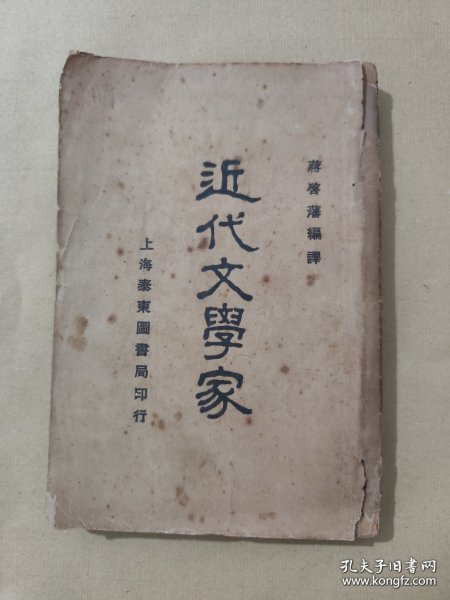 蔣啓藩編譯
近代文學家
上海泰東圖書局印行
孔夫子旧书网
www.kongfz.com